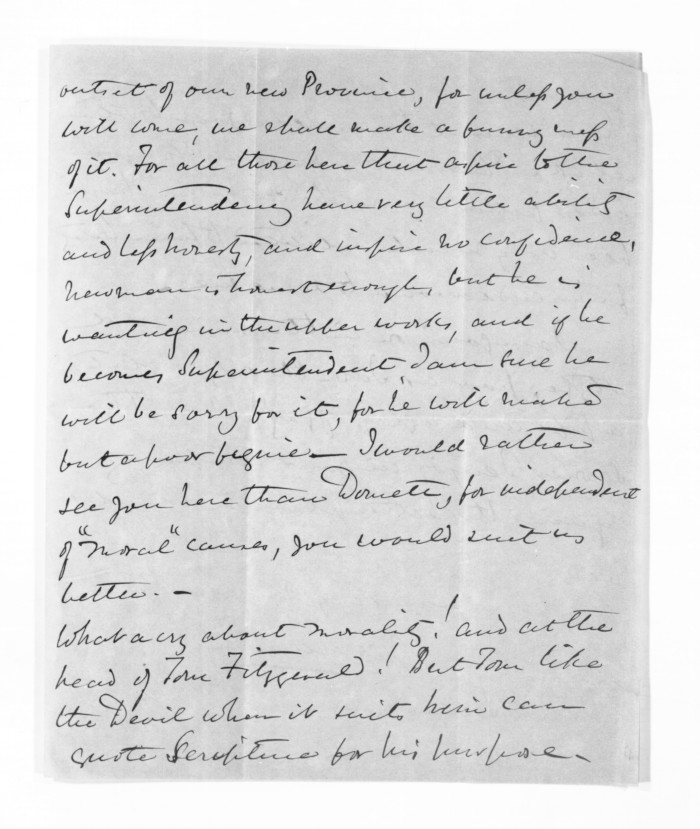 outset of our new Province, for unless you
will come, we shall make a funny mess
of it. For all those here that aspire to the
Superintendency have very little ability
and less honesty, and inspire no confidence.
Newman is honest enough, but he is
wanting in the upper works, and if he
becomes Superintendent, I am sure he
will be sorry for it, for he will make
but a poor figure — I would rather
see you here than Domett, for independent
of "moral" causes, you would suit us
better. —
What a cry about morality! and at the
head of Tom Fitzgerald! But Tom like
the Devil when it suits him can
quote Scripture for his purpose —